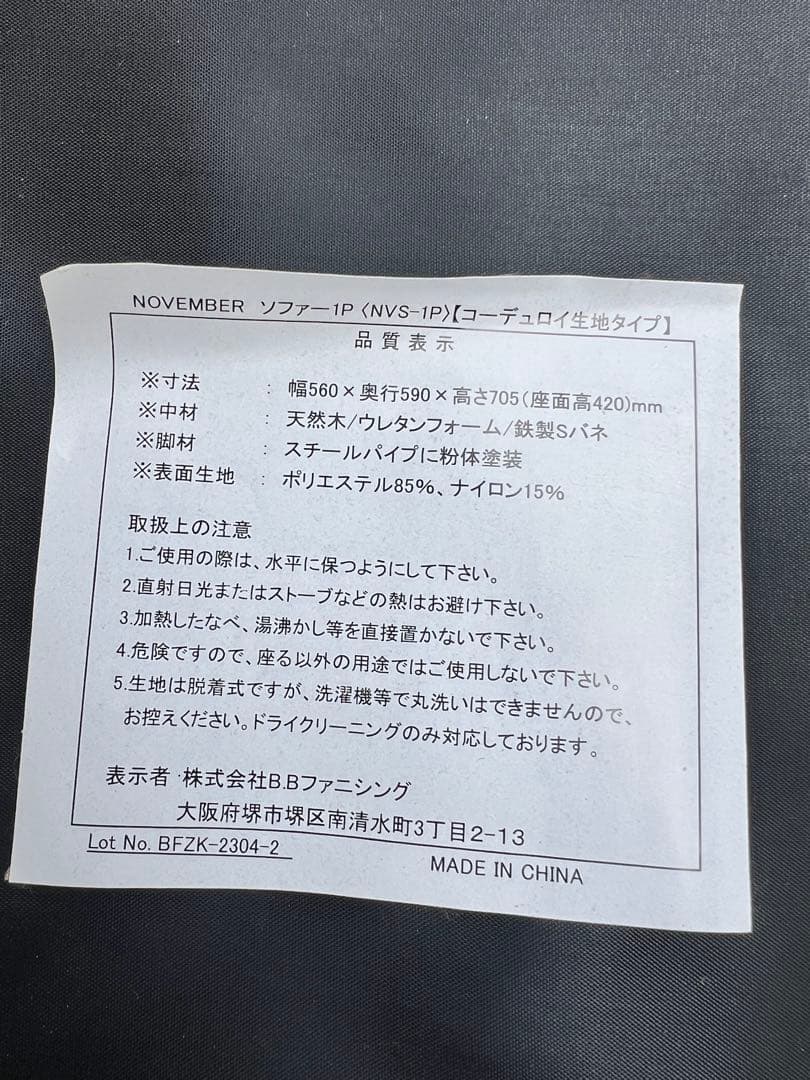 NOVEMBER ソファー1P 〈NVS-1P〉【コーデュロイ生地タイプ】
品質表示
※寸法 : 幅560×奥行590×高さ705(座面高420)mm
※中材 : 天然木/ウレタンフォーム/鉄製Sバネ
※脚材 : スチールパイプに粉体塗装
※表面生地 : ポリエステル85%、ナイロン15%
取扱上の注意
1.ご使用の際は、水平に保つようにして下さい。
2.直射日光またはストーブなどの熱はお避け下さい。
3.加熱したなべ、湯沸かし等を直接置かないで下さい。
4.危険ですので、座る以外の用途ではご使用しないで下さい。
5.生地は脱着式ですが、洗濯機等で丸洗いはできませんので、
お控えください。ドライクリーニングのみ対応しております。
表示者 株式会社B.Bファニシング
大阪府堺市堺区南清水町3丁目2-13
Lot No. BFZK-2304-2
MADE IN CHINA